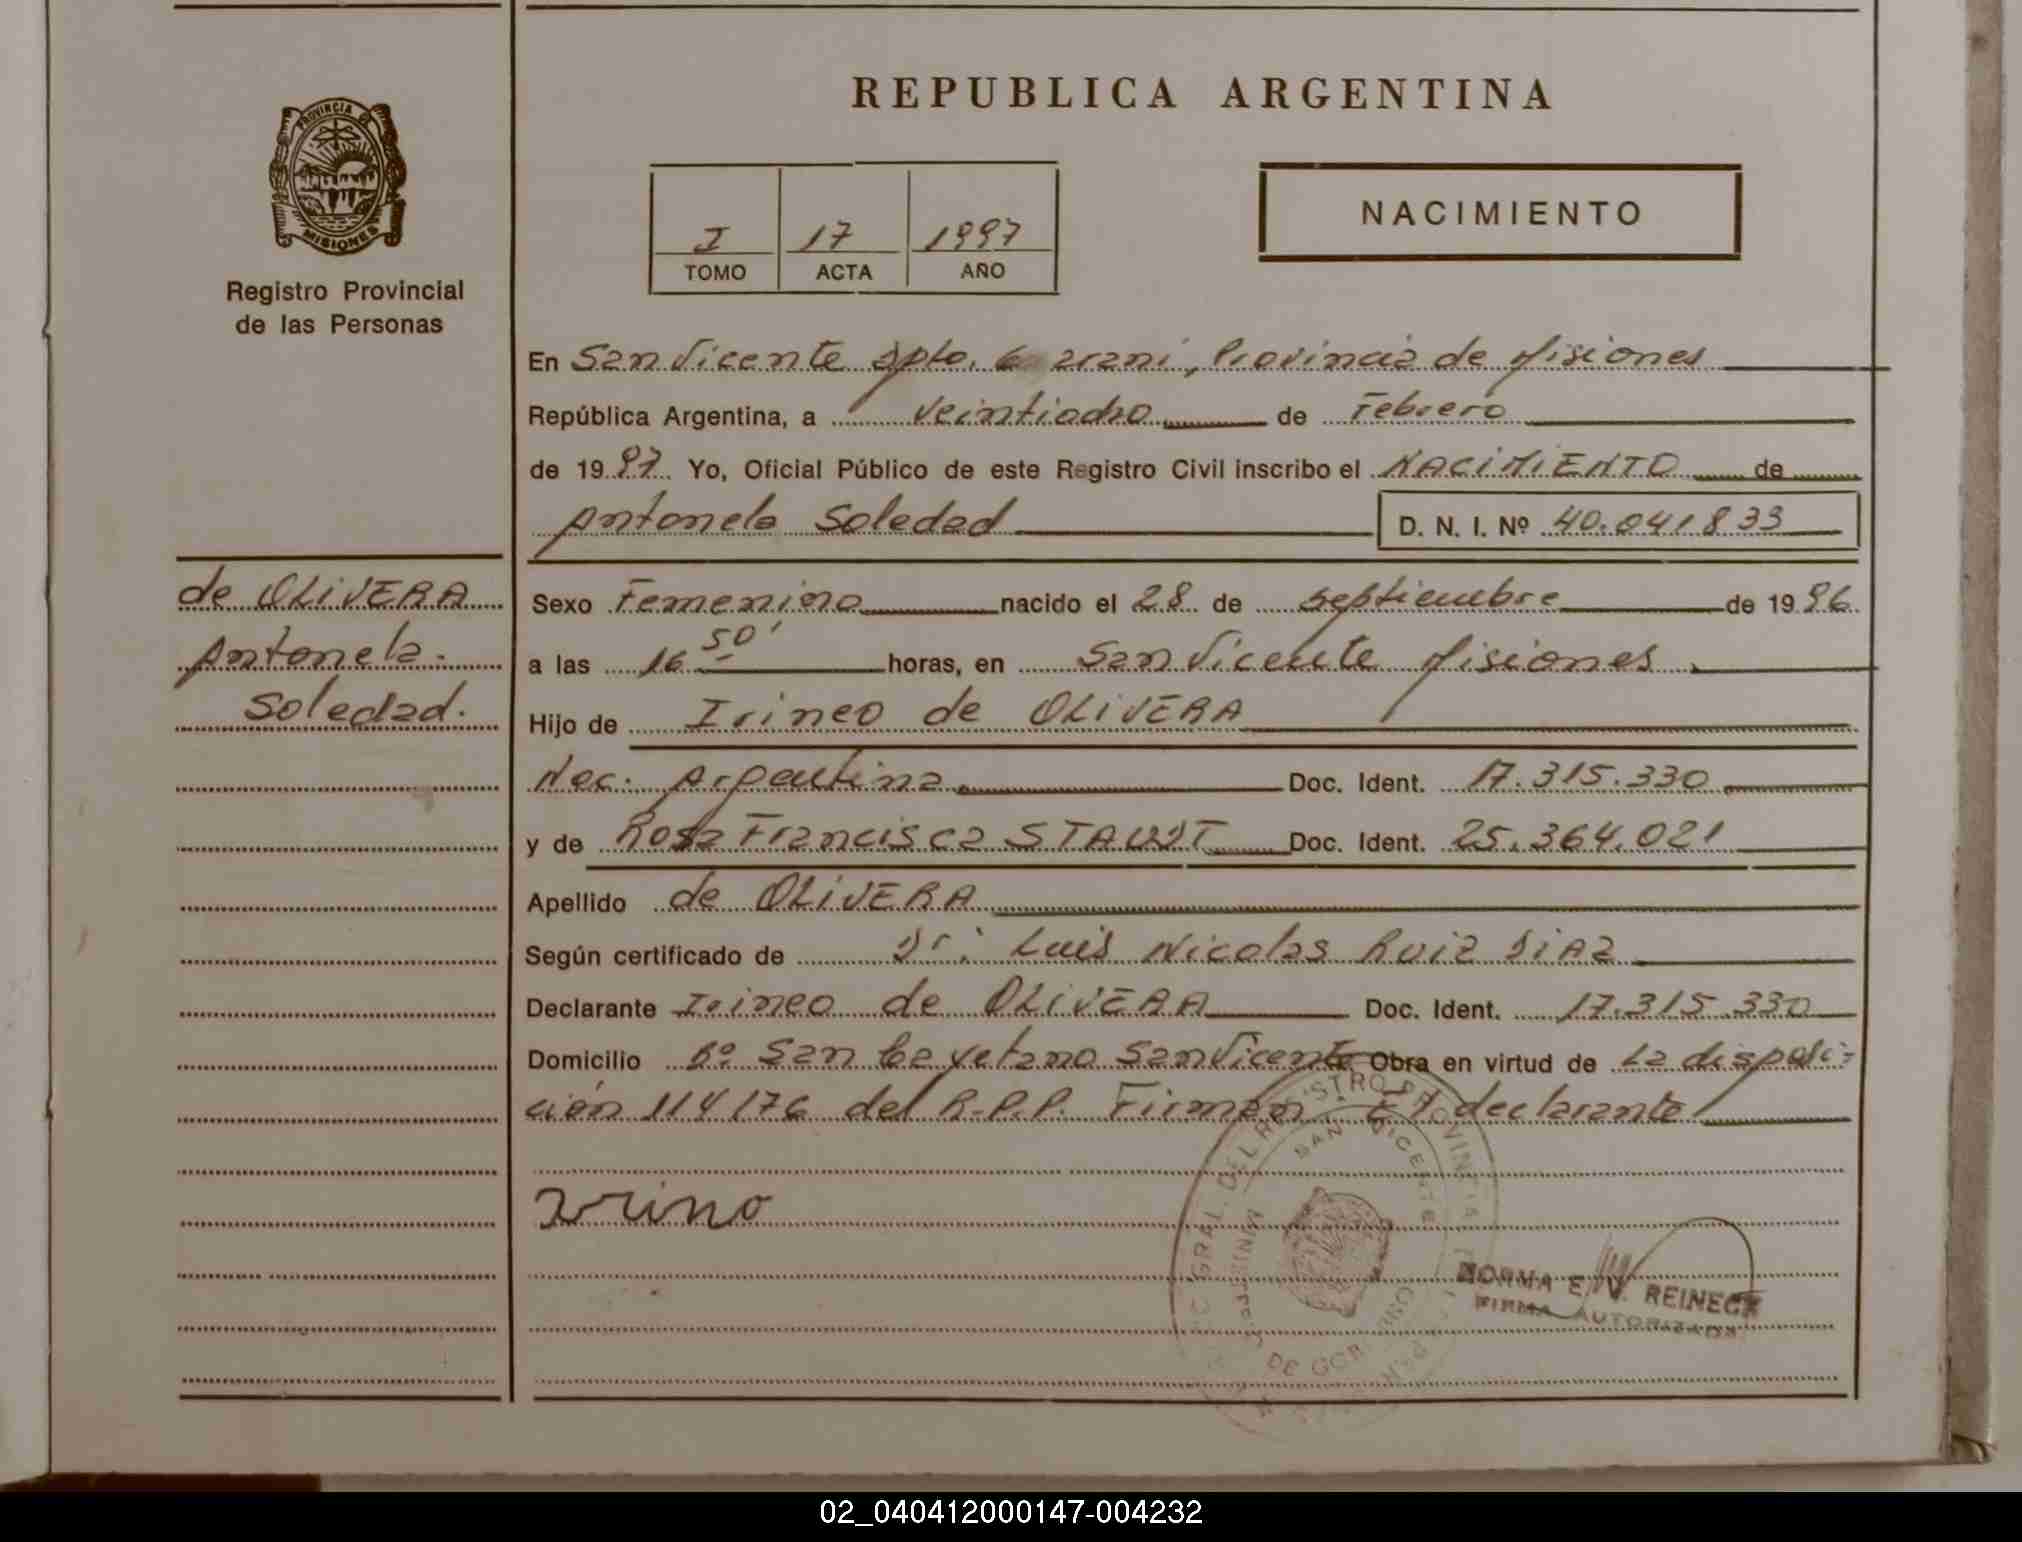 REPUBLICA ARGENTINA
PROVINCIA DE
MISIONES
Registro Provincial
de las Personas
I 17 1997
TOMO ACTA AÑO
NACIMIENTO
En San Vicente Dpto. Guarani, Provincia de Misiones
República Argentina, a veintiocho de Febrero
de 1997 Yo, Oficial Público de este Registro Civil inscribo el NACIMIENTO de
Antonela Soledad D. N. I. Nº 40.041833
de OLIVERA
Antonela.
Soledad.
Sexo Femenino nacido el 28 de septiembre de 1996
a las 16 50' horas, en San Vicente Misiones
Hijo de Irineo de OLIVERA
Nac. Argentina Doc. Ident. 17.315.330
y de Rosa Francisca STAUDT Doc. Ident. 25.364.021
Apellido de OLIVERA
Según certificado de Dr: Luis Nicolas RUIZ DIAZ
Declarante Irineo de OLIVERA Doc. Ident. 17.315.330
Domicilio Bº San Cayetano San Vicente Obra en virtud de la disposi-
ción 114/76 del R.P.P. Firman: El declarante
Irino
SAN VICENTE
NORMA E. V. REINECK
FIRMA AUTORIZADA
02_040412000147-004232